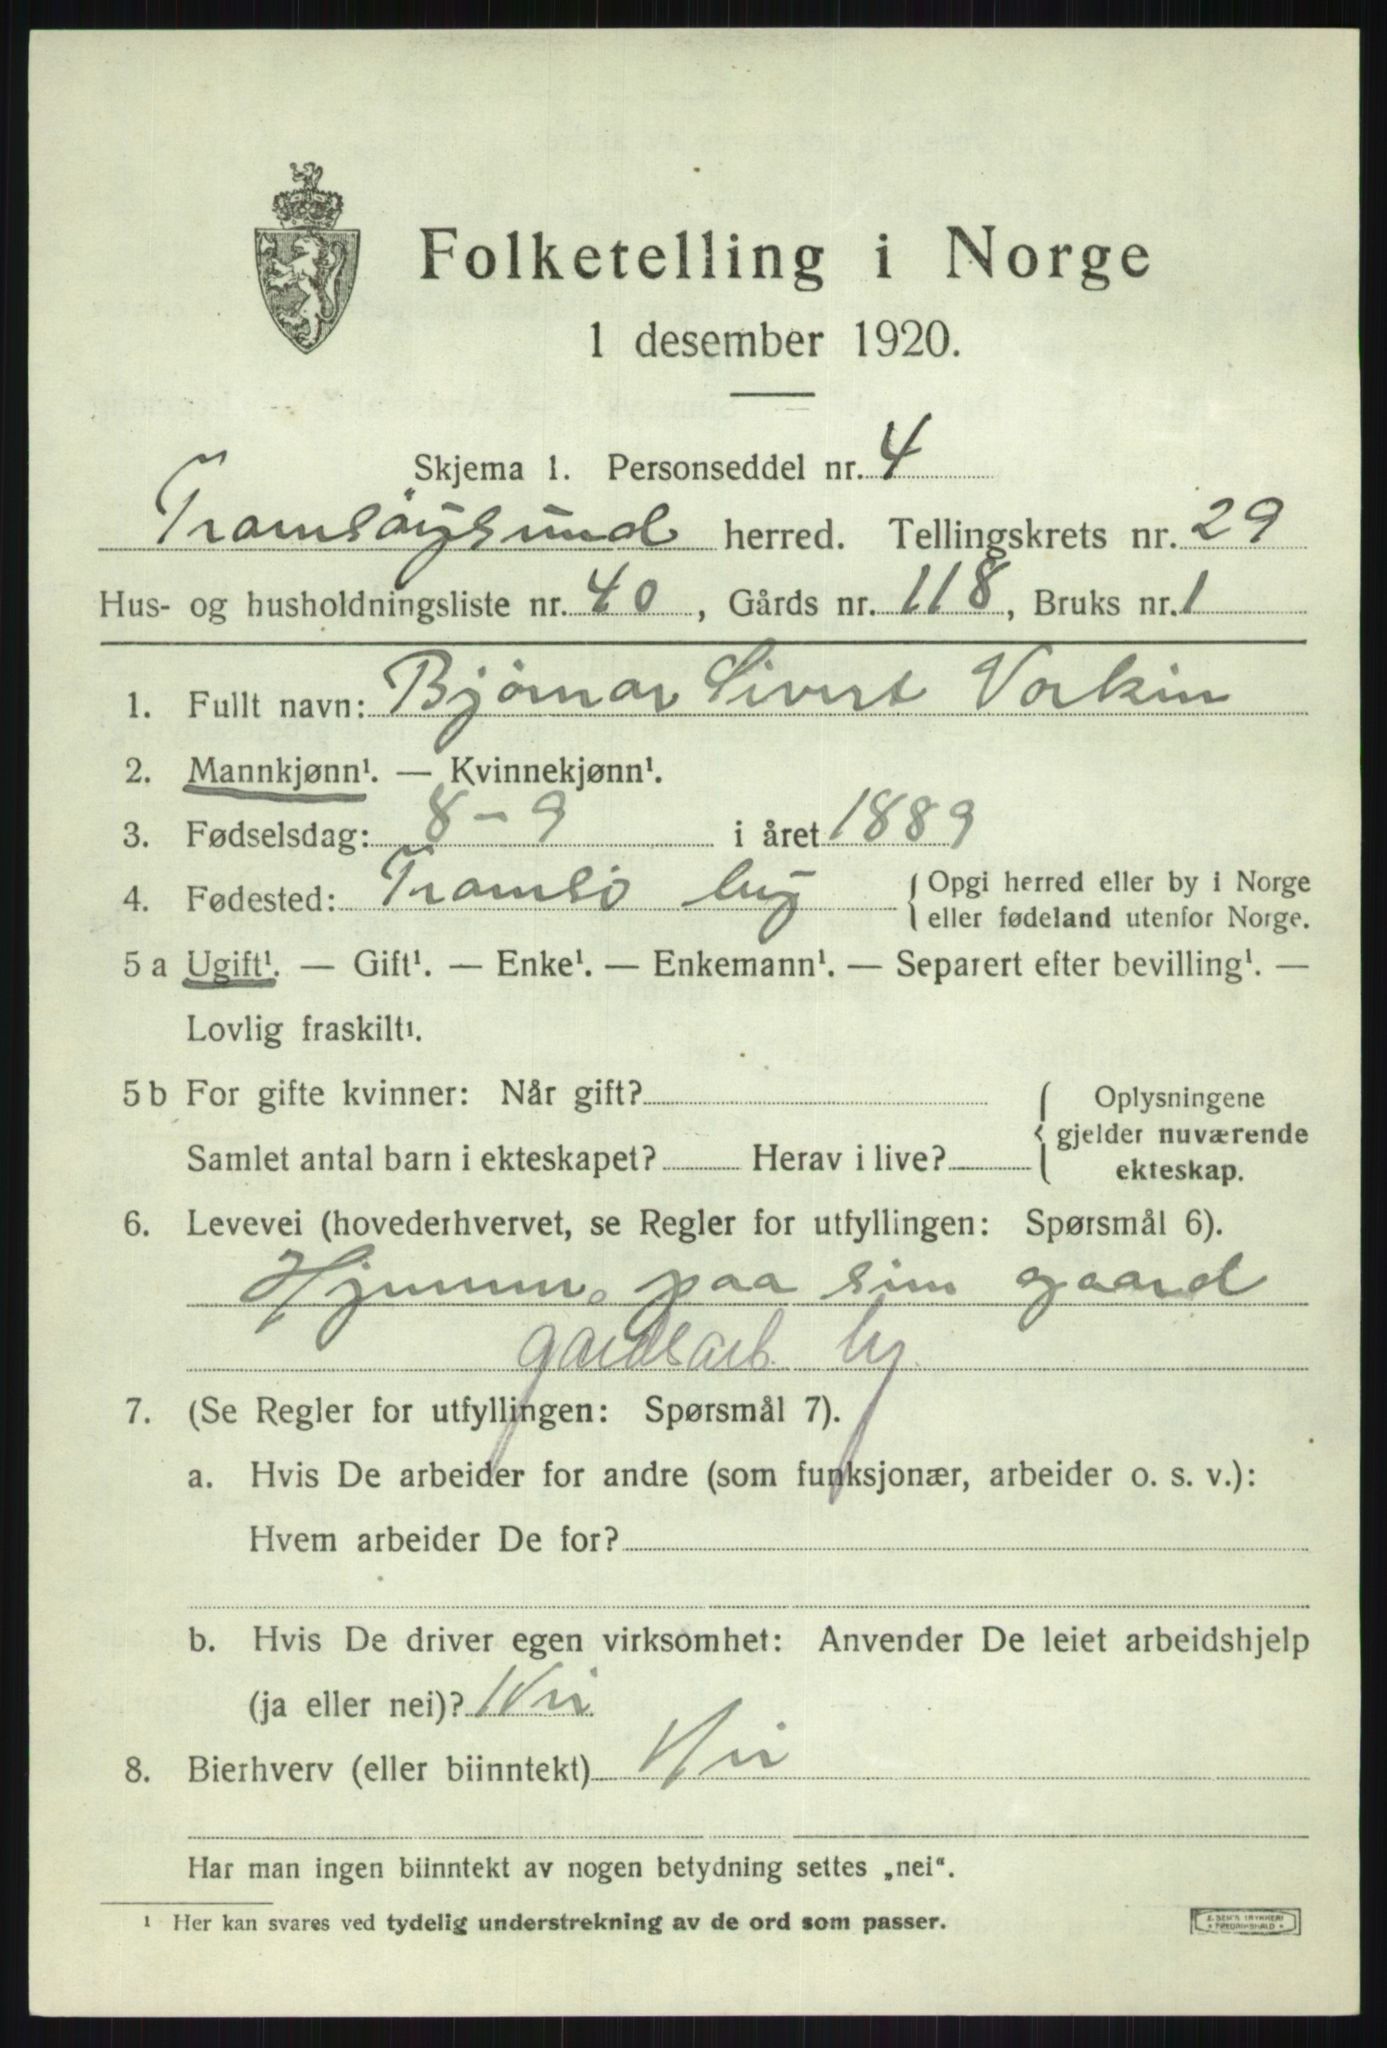 Folketelling i Norge
1 desember 1920.
Skjema 1. Personseddel nr. 4
Tromsöysund herred. Tellingskrets nr. 29
Hus- og husholdningsliste nr. 40, Gårds nr. 118, Bruks nr. 1
1. Fullt navn: Bjørnar Sivert Vorkin
2. Mannkjønn¹. — Kvinnekjønn¹.
3. Fødselsdag: 8 - 9 i året 1889
4. Fødested: Tromsö by { Opgi herred eller by i Norge
eller fødeland utenfor Norge.
5 a Ugift¹. — Gift¹. — Enke¹. — Enkemann¹. — Separert efter bevilling¹. —
Lovlig fraskilt¹.
5 b For gifte kvinner: Når gift? { Oplysningene
gjelder nuværende
Samlet antal barn i ekteskapet? Herav i live?
ekteskap.
6. Levevei (hovederhvervet, se Regler for utfyllingen: Spørsmål 6).
Hjemme paa sin gaard
gardsarb. by
7. (Se Regler for utfyllingen: Spørsmål 7).
a. Hvis De arbeider for andre (som funksjonær, arbeider o. s. v.):
Hvem arbeider De for?
b. Hvis De driver egen virksomhet: Anvender De leiet arbeidshjelp
(ja eller nei)? Nei
8. Bierhverv (eller biinntekt) Nei
Har man ingen biinntekt av nogen betydning settes „nei".
¹ Her kan svares ved tydelig understrekning av de ord som passer.